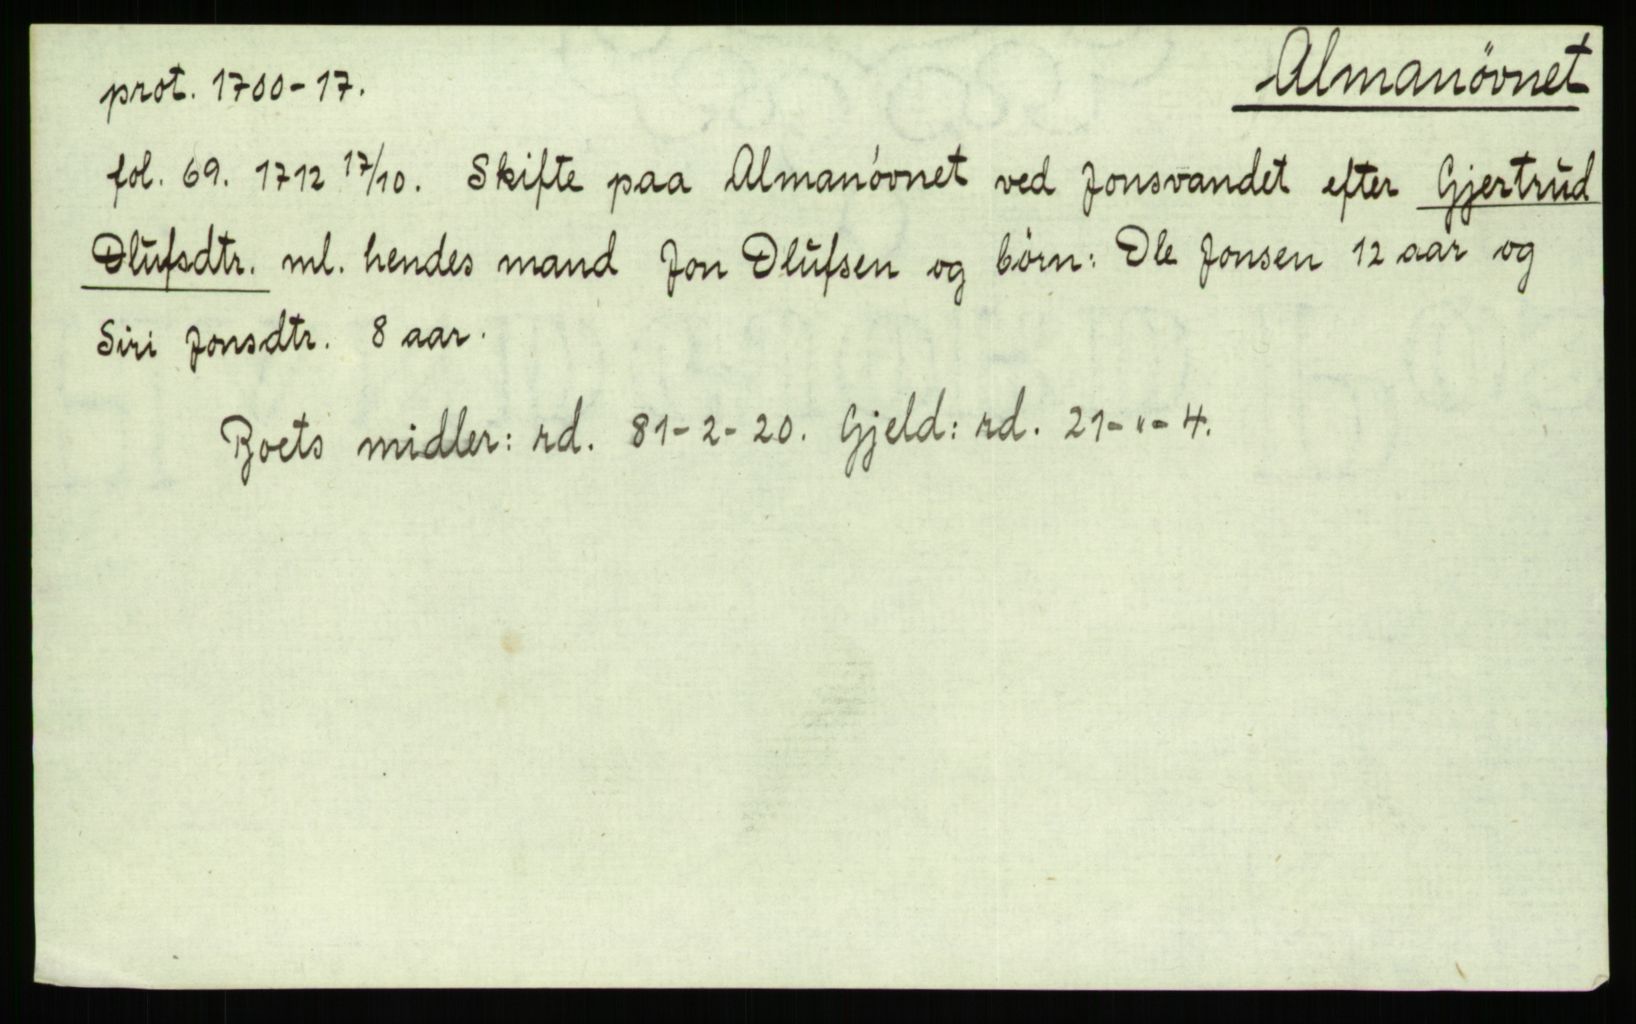 Almanövnet
prot. 1700-17.
fol. 69. 1712 17/10. Skifte paa Almanövnet ved Jonsvandet efter Gjertrud
Olufsdtr. ml. hendes mand Jon Olufsen og börn: Ole Jonsen 12 aar og
Siri Jonsdtr. 8 aar.
Boets midler: rd. 81-2-20. Gjeld: rd. 21-"-4.